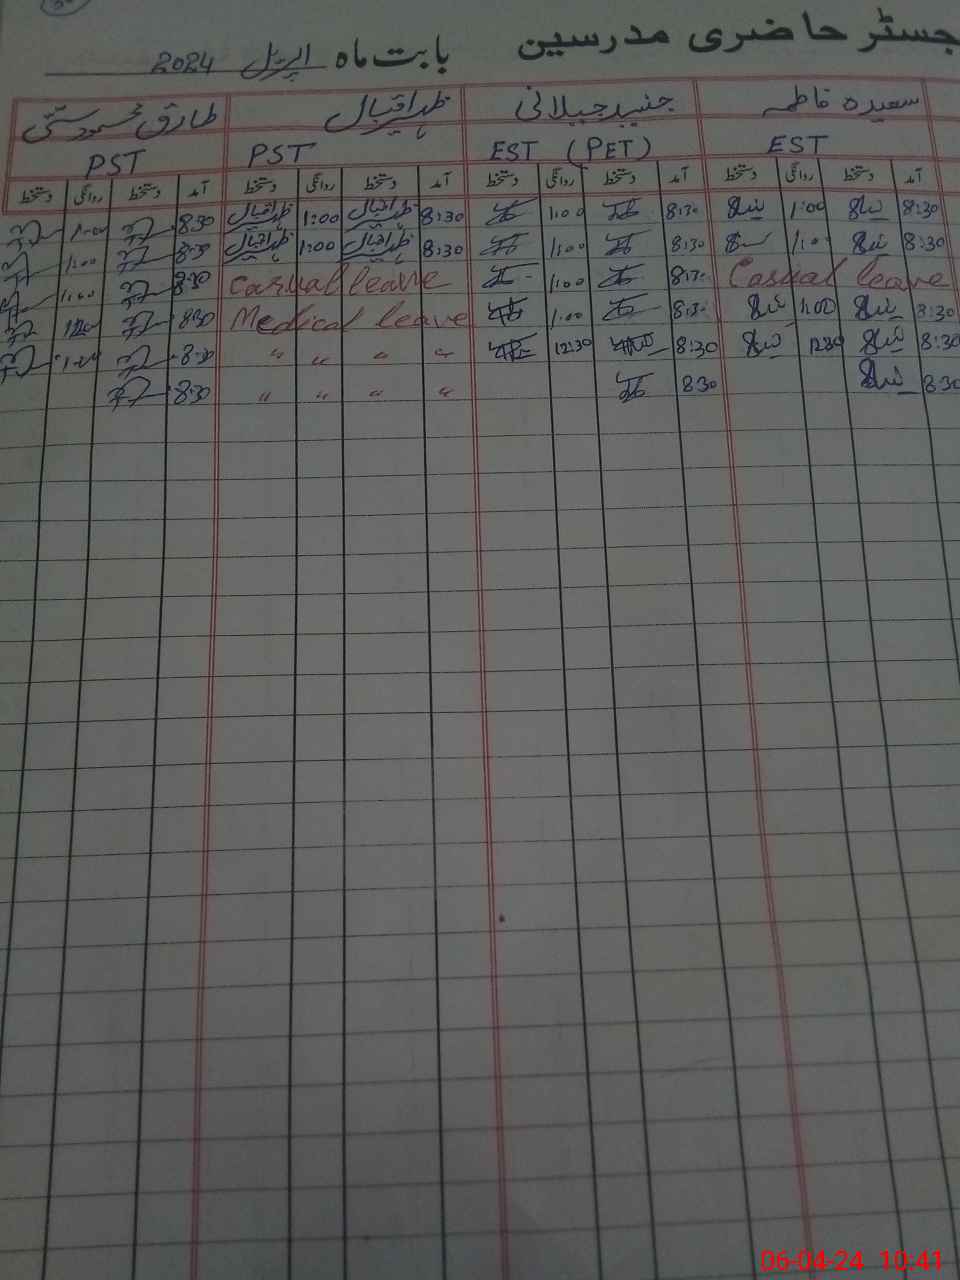 جسٹر حاضری مدرسین بابت ماہ اپریل 2024
سعیدہ فاطمہ جنید جیلانی ظہیر اقبال طارق محمود ستی
EST EST (PET) PST PST
آمد دستخط روانگی دستخط آمد دستخط روانگی دستخط آمد دستخط روانگی دستخط آمد دستخط روانگی دستخط
8:30 1:00 8:30 1:00 8:30 ظہیر اقبال 1:00 ظہیر اقبال 8:30 1:00
8:30 1:00 8:30 1:00 8:30 ظہیر اقبال 1:00 ظہیر اقبال 8:30 1:00
Casual leave 8:30 1:00 Casual leave 8:30 1:00
8:30 1:00 8:30 1:00 Medical leave 8:30
8:30 1230 8:30 12:30 " " " " 8:30
8:30 8:30 " " " " 8:30
06-04-24 10:41